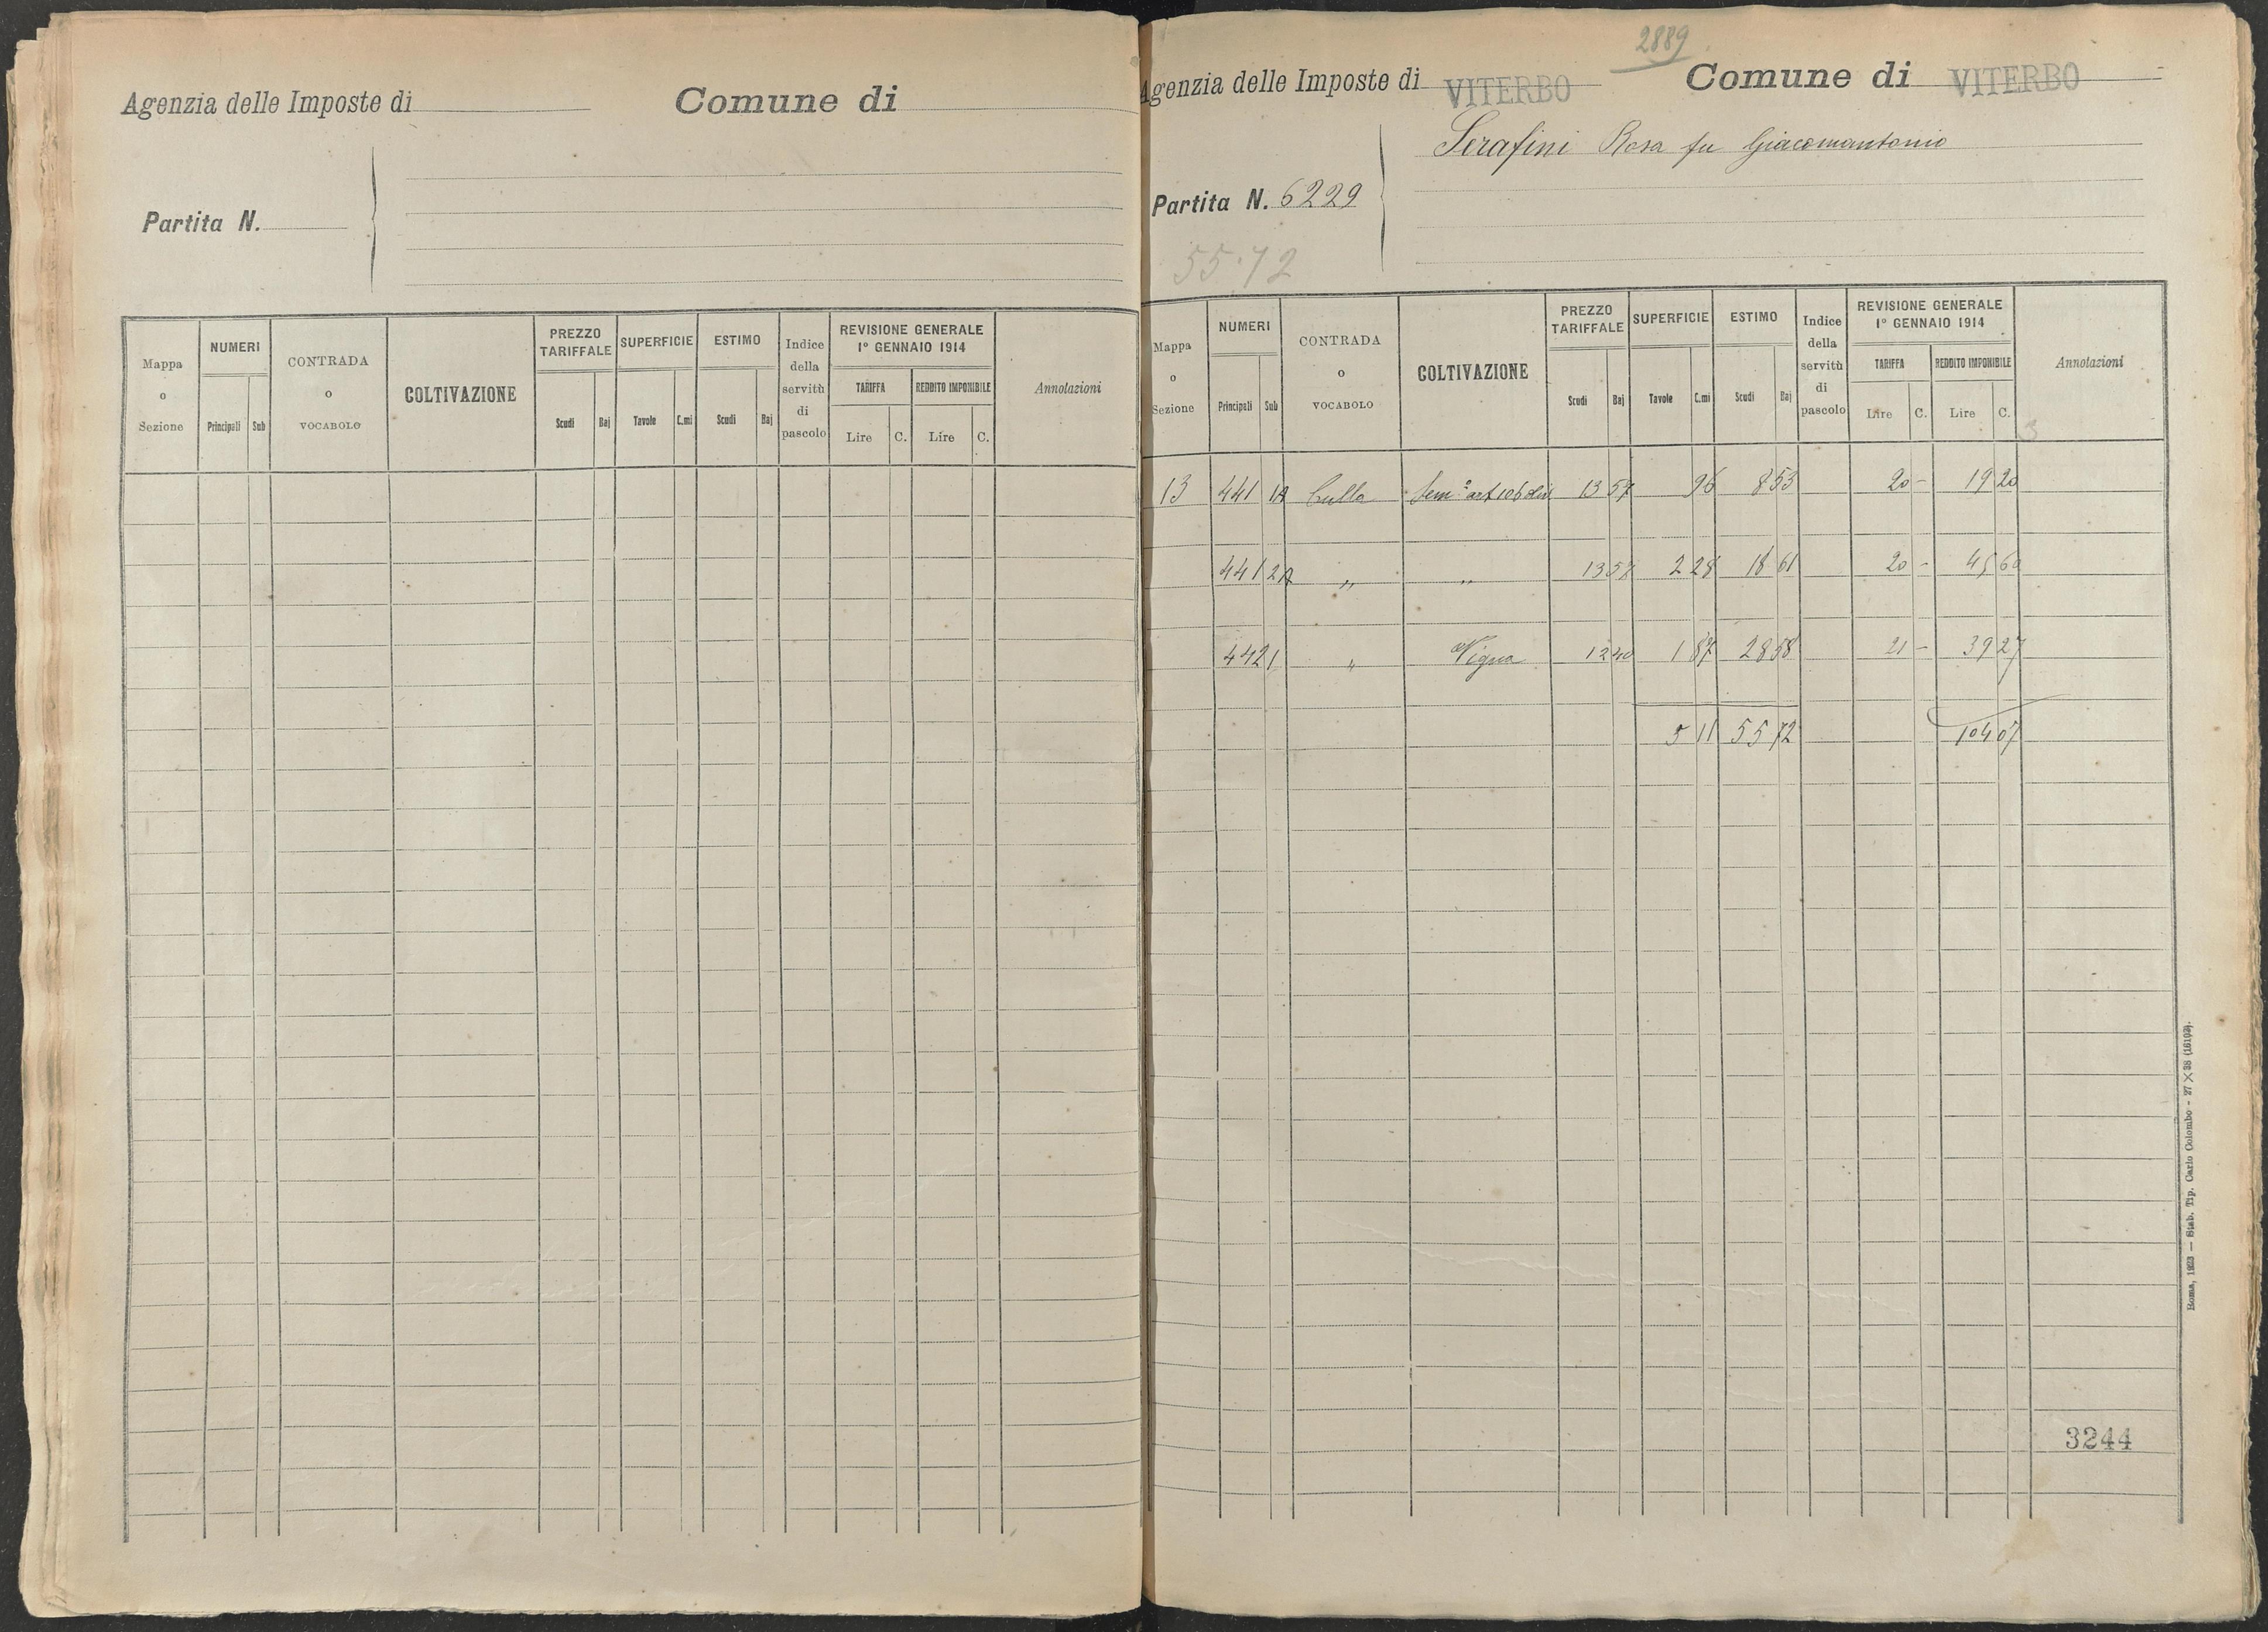 Agenzia delle Imposte di
Comune di
Partita N.
Mappa o Sezione
NUMERI
Principali Sub
CONTRADA o VOCABOLO
COLTIVAZIONE
PREZZO TARIFFALE
Scudi Baj
SUPERFICIE
Tavole C.mi
ESTIMO
Scudi Baj
Indice della servitù di pascolo
REVISIONE GENERALE
1º GENNAIO 1914
TARIFFA
Lire C.
REDDITO IMPONIBILE
Lire C.
Annotazioni
2889
Agenzia delle Imposte di VITERBO
Comune di VITERBO
Serafini Rosa fu Giacomantonio
Partita N. 6229
55.72
Mappa o Sezione
NUMERI
Principali Sub
CONTRADA o VOCABOLO
COLTIVAZIONE
PREZZO TARIFFALE
Scudi Baj
SUPERFICIE
Tavole C.mi
ESTIMO
Scudi Baj
Indice della servitù di pascolo
REVISIONE GENERALE
1º GENNAIO 1914
TARIFFA
Lire C.
REDDITO IMPONIBILE
Lire C.
Annotazioni
13 441 1A 13 57 96 8 53 20 - 19 20
441 2A " " 13 57 2 28 18 61 20 - 45 60
442 1 " Vigna 12 40 1 87 28 58 21 - 39 27
5 11 55 72 104 07
3244
Roma, 1923 — Stab. Tip. Carlo Colombo - 27 × 38 (16103).